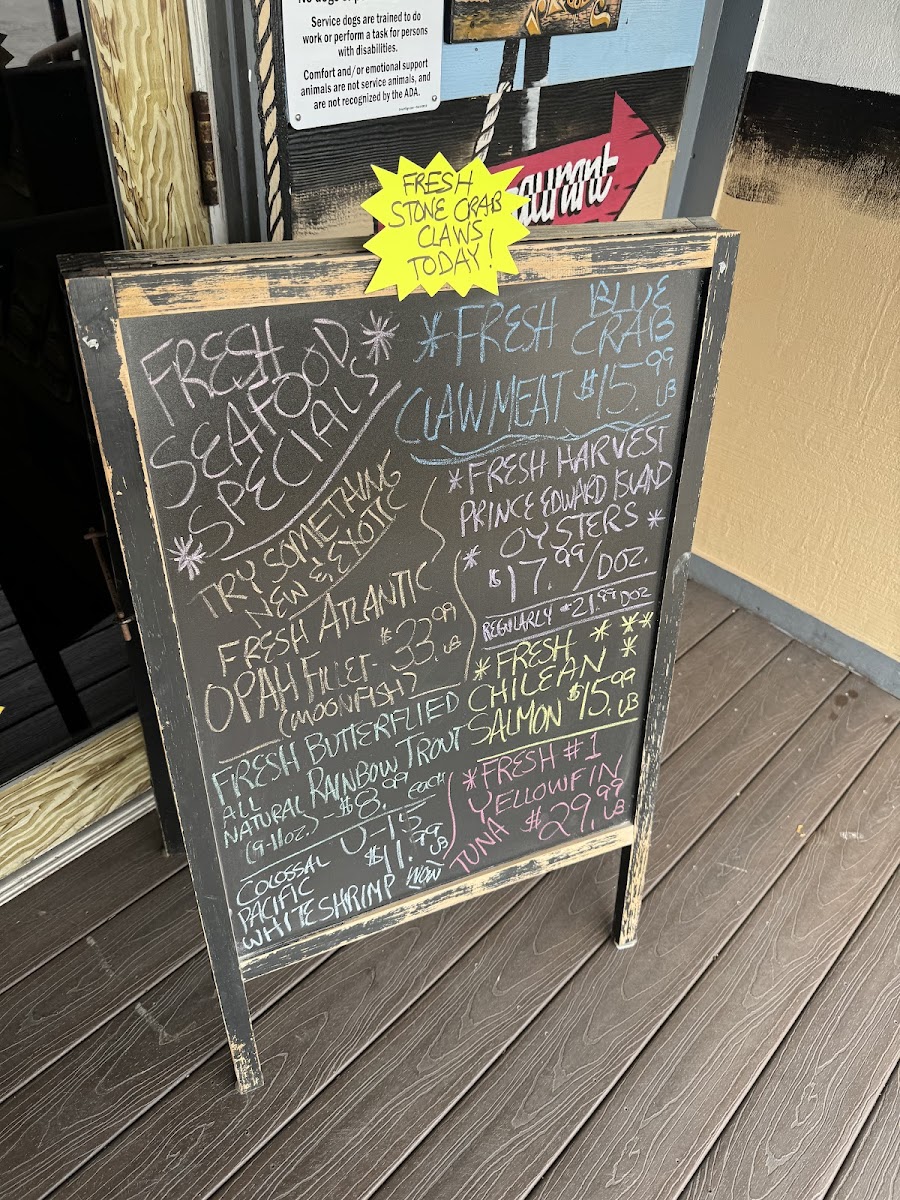 Service dogs are trained to do
work or perform a task for persons
with disabilities.
Comfort and/or emotional support
animals are not service animals, and
are not recognized by the ADA.
FRESH
STONE CRAB
CLAWS
TODAY!
FRESH
SEAFOOD
SPECIALS
TRY SOMETHING
NEW & EXOTIC
FRESH ATLANTIC
OPAH FILLET- $33.99 LB
(MOONFISH)
FRESH BUTTERFLIED
ALL
NATURAL RAINBOW TROUT
(9-11oz.) - $8.99 EACH
COLOSSAL U-15
PACIFIC $11.99 LB
WHITE SHRIMP WOW
* FRESH BLUE
CRAB
CLAW MEAT $15.99 LB
* FRESH HARVEST
PRINCE EDWARD ISLAND
OYSTERS *
* $17.99/DOZ.
REGULARLY $21.99 DOZ
* FRESH * * * *
CHILEAN
SALMON $15.99 LB
* FRESH #1
YELLOWFIN
TUNA $29.99 LB